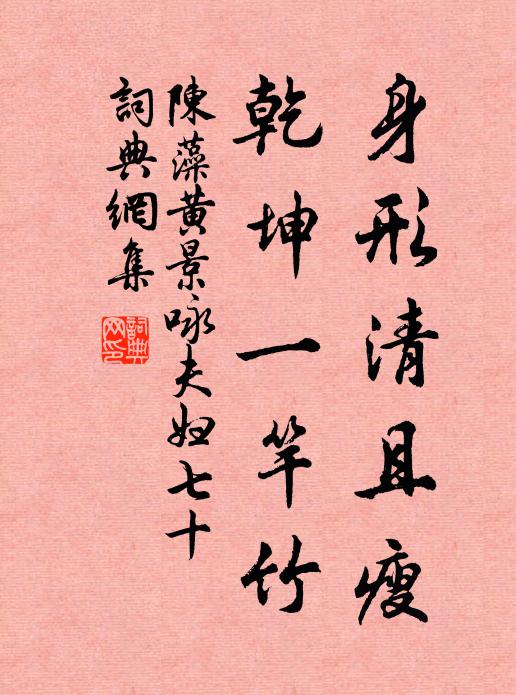 身形清且瘦
乾坤一竿竹
陳藻黄景咏夫婦七十
詞典網集
詞典网印